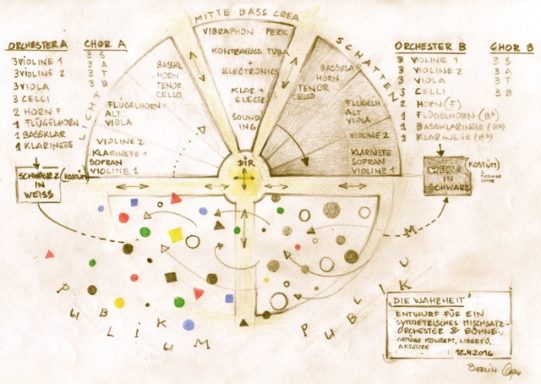 MITTE BASS CREA
VIBRAPHON PERK
KONTRABASS TUBA
+
ELECTRONICS
KLAR +
ELECTR.
SOUND
ING
ORCHESTER A
3 VIOLINE 1
3 VIOLINE 2
3 VIOLA
3 CELLI
2 HORN F
1 FLÜGELHORN
1 BASSKLAR
1 KLARINETTE
CHOR A
3 S
3 A
3 T
3 B
SCHWARZ
IN
WEISS
(KOSTÜM)
LICHT
BASSKL
HORN
TENOR
CELLO
FLÜGELHORN
ALT
VIOLA
VIOLINE 2
KLARINETTE
SOPRAN
VIOLINE 1
DIR
SCHATTEN
BASSKLAR
HORN
TENOR
CELLO
FLÜGELH
ALT
VIOLA
VIOLINE 2
KLARINETTE
SOPRAN
VIOLINE 1
ORCHESTER B
3 VIOLINE 1
3 VIOLINE 2
3 VIOLA
3 CELLI
2 HORN (F)
1 FLÜGELHORN (Bb)
1 BASSKLARINETTE (Bb)
1 KLARINETTE (Bb)
CHOR B
3 S
3 A
3 T
3 B
IN
SCHWARZ
(KOSTÜM)
PUBLIKUM
PUBLIKUM
DIE WAHRHEIT
ENTWURF FÜR EIN
SYMMETRISCHES MISCHSATZ-
ORCHESTER & BÜHNE,
KONZEPT, LIBRETTO,
AKTEURE
12.4.2016
BERLIN